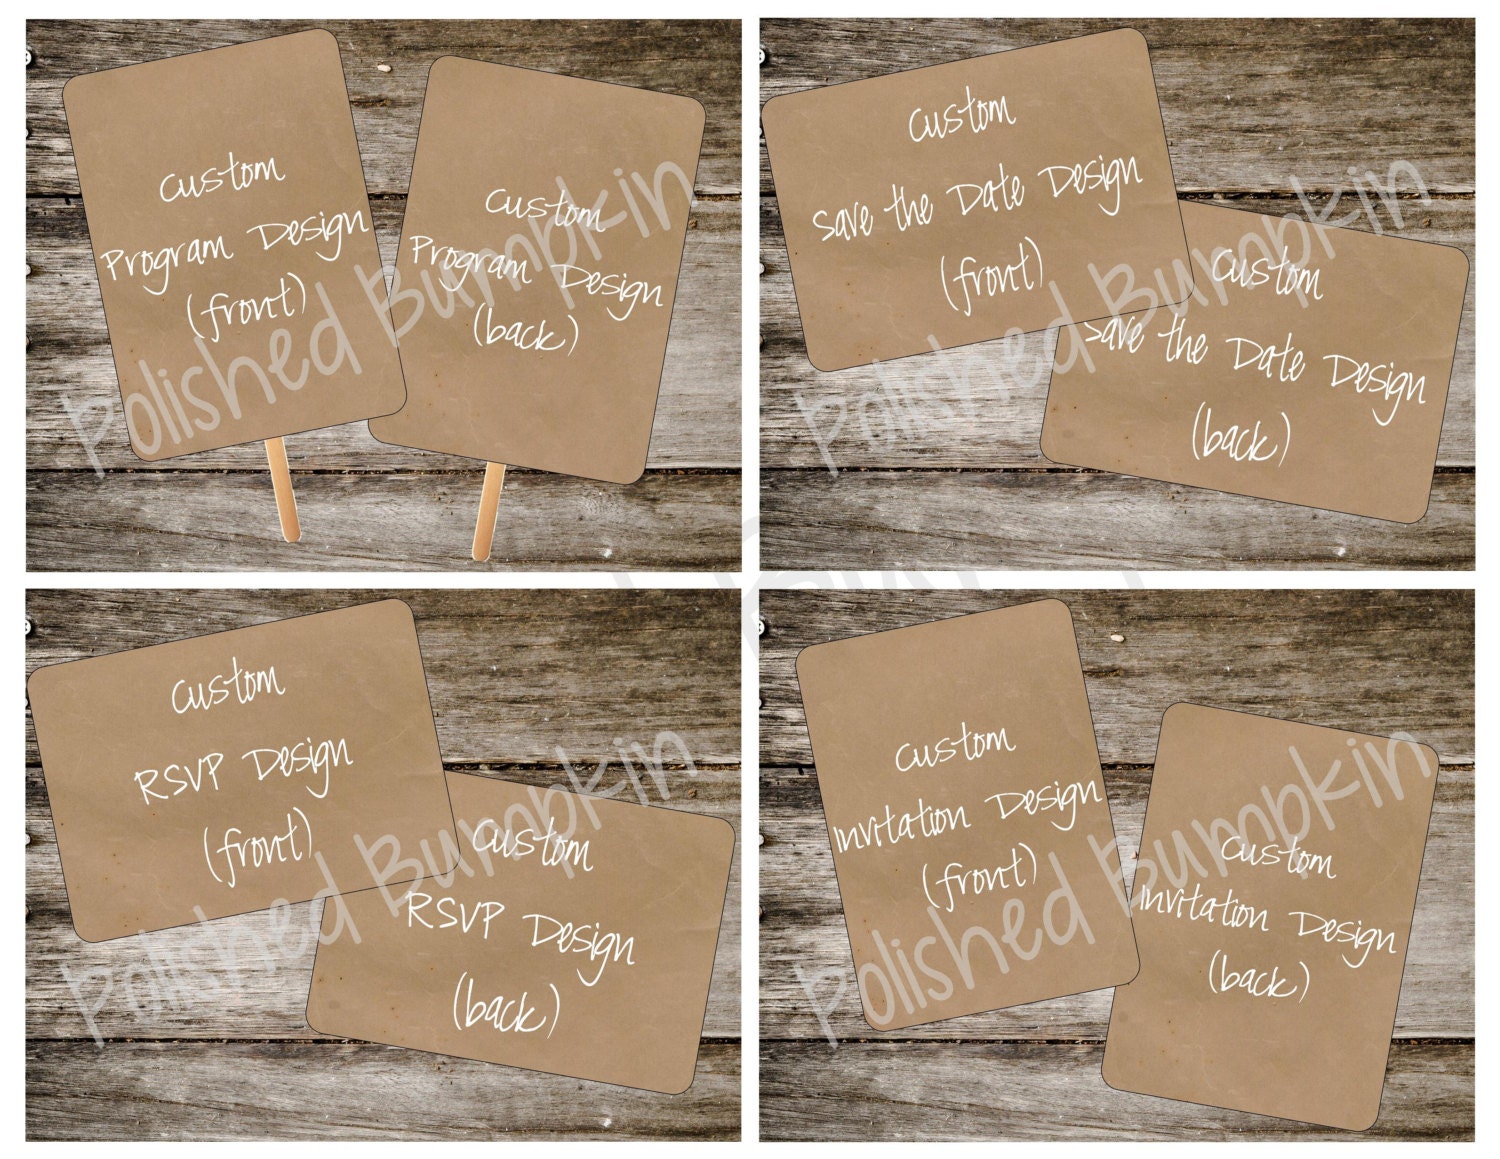 Custom
Program Design
(front)
Custom
Program Design
(back)
Polished Bumpkin
Custom
Save the Date Design
(front)
Custom
Save the Date Design
(back)
Polished Bumpkin
Custom
RSVP Design
(front)
Custom
RSVP Design
(back)
Polished Bumpkin
Custom
Invitation Design
(front)
Custom
Invitation Design
(back)
Polished Bumpkin